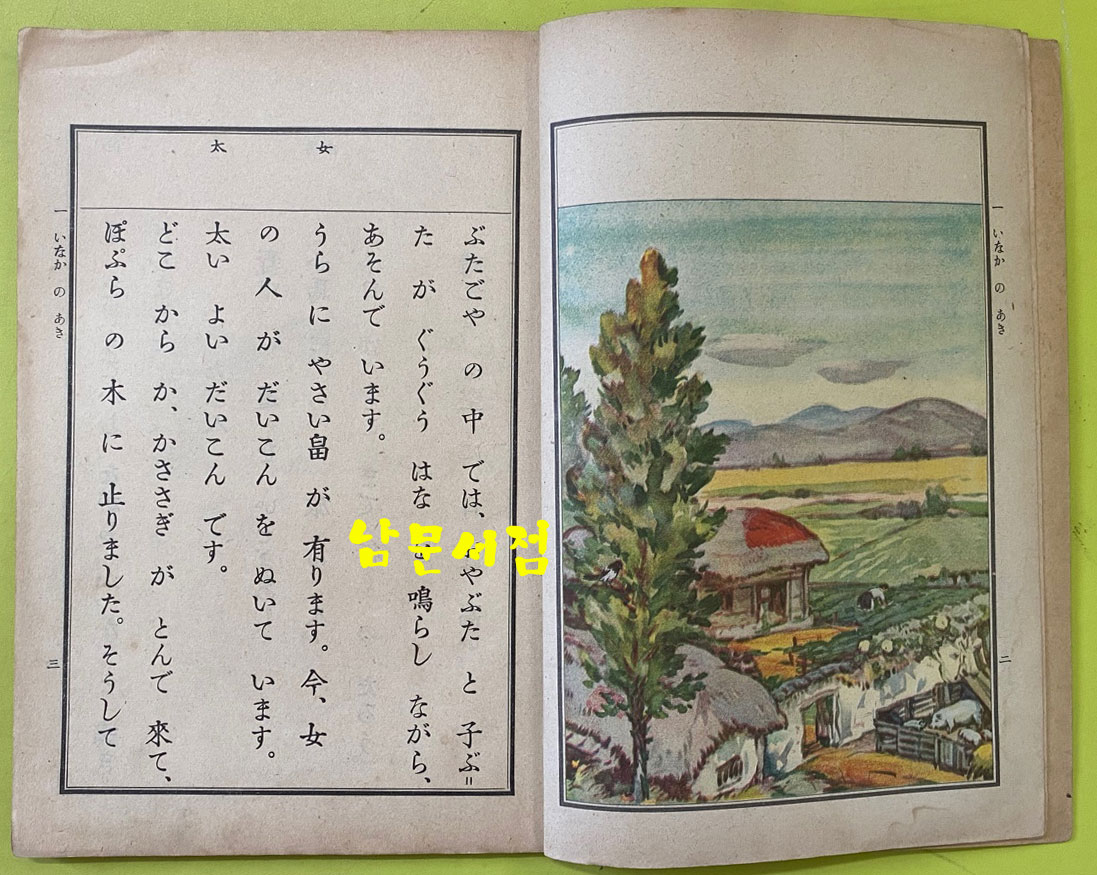 一 いなか の あき
二
女
太
ぶたごや の 中 では、おやぶた と 子ぶ＝
た が ぐうぐう はな を 鳴らし ながら、
あそんで います。
うら に やさい畠 が 有ります。今、女
の 人 が だいこん を ぬいて います。
太い よい だいこん です。
どこ から か、かささぎ が とんで 來て、
ぽぷら の 木 に 止りました。そうして
一 いなか の あき
三
남문서점